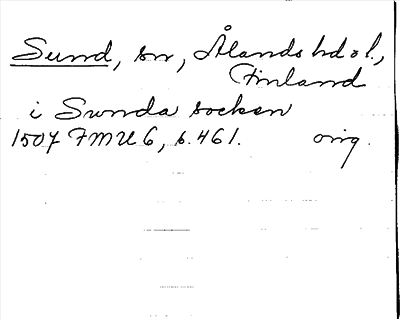 Sund, sn, Ålands hd o l.,
Finland
i Sunda socken
1507 FMU 6, s. 461. orig.